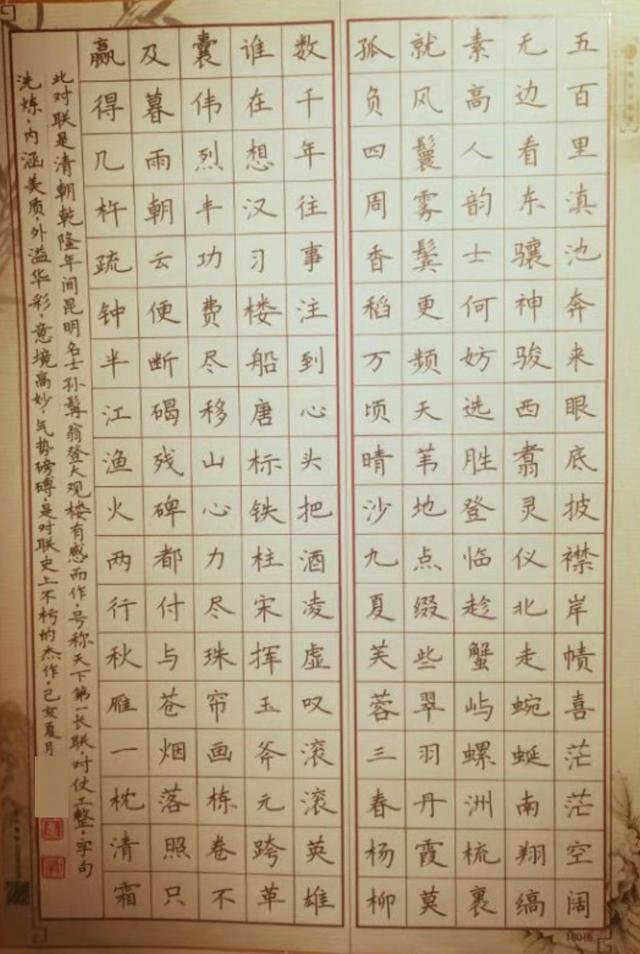 五百里滇池奔来眼底披襟岸帻喜茫茫空阔
无边看东骧神骏西翥灵仪北走蜿蜒南翔缟
素高人韵士何妨选胜登临趁蟹屿螺洲梳裹
就风鬟雾鬓更频天苇地点缀些翠羽丹霞莫
孤负四周香稻万顷晴沙九夏芙蓉三春杨柳
数千年往事注到心头把酒凌虚叹滚滚英雄
谁在想汉习楼船唐标铁柱宋挥玉斧元跨革
囊伟烈丰功费尽移山心力尽珠帘画栋卷不
及暮雨朝云便断碣残碑都付与苍烟落照只
赢得几杵疏钟半江渔火两行秋雁一枕清霜
此对联是清朝乾隆年间昆明名士孙髯翁登大观楼有感而作，号称天下第一长联，对仗工整，字句
洗炼，内涵美质，外溢华彩，意境高妙，气势磅礴，是对联史上不朽的杰作，己亥夏月